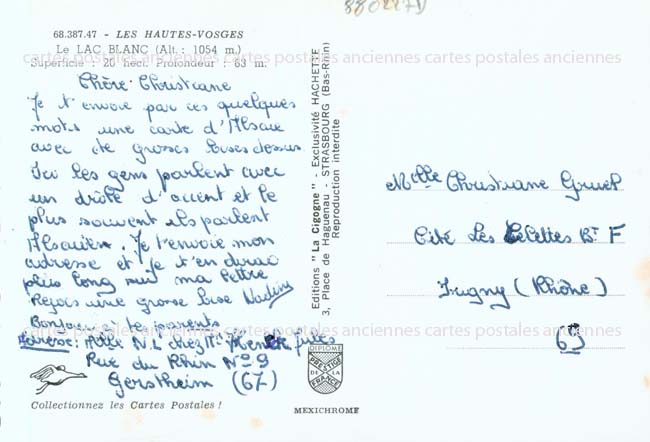 880227D
68.387.47 - LES HAUTES-VOSGES
Le LAC BLANC (Alt.: 1054 m.)
Superficie : 20 hect. Profondeur : 63 m.
cartes postales anciennes cartes postales anciennes cartes postales anciennes
Chère Christiane
Je t'envoie par ces quelques
mots une carte d'Alsace
avec de grosses bises dessus
Ici les gens parlent avec
un drôle d'accent et le
plus souvent ils parlent
Alsacien. Je t'envoie mon
adresse et je t'en dirai
plus long sur ma lettre
Reçois une grosse bise Nadine
Bonjour à te parents
Adresse : Melle N.L chez
Rue du Rhin N° 9
Gerstheim (67)
Collectionnez les Cartes Postales !
Editions "La Cigogne" - Exclusivité HACHETTE
3, Place de Haguenau - STRASBOURG (Bas-Rhin)
Reproduction interdite
DIPLOME
PRESTIGE
DE LA
FRANCE
MEXICHROME
Melle Christiane
Cité Les Bt F
Irigny (Rhône)
69
cartes postales anciennes cartes postales anciennes cartes postales anciennes